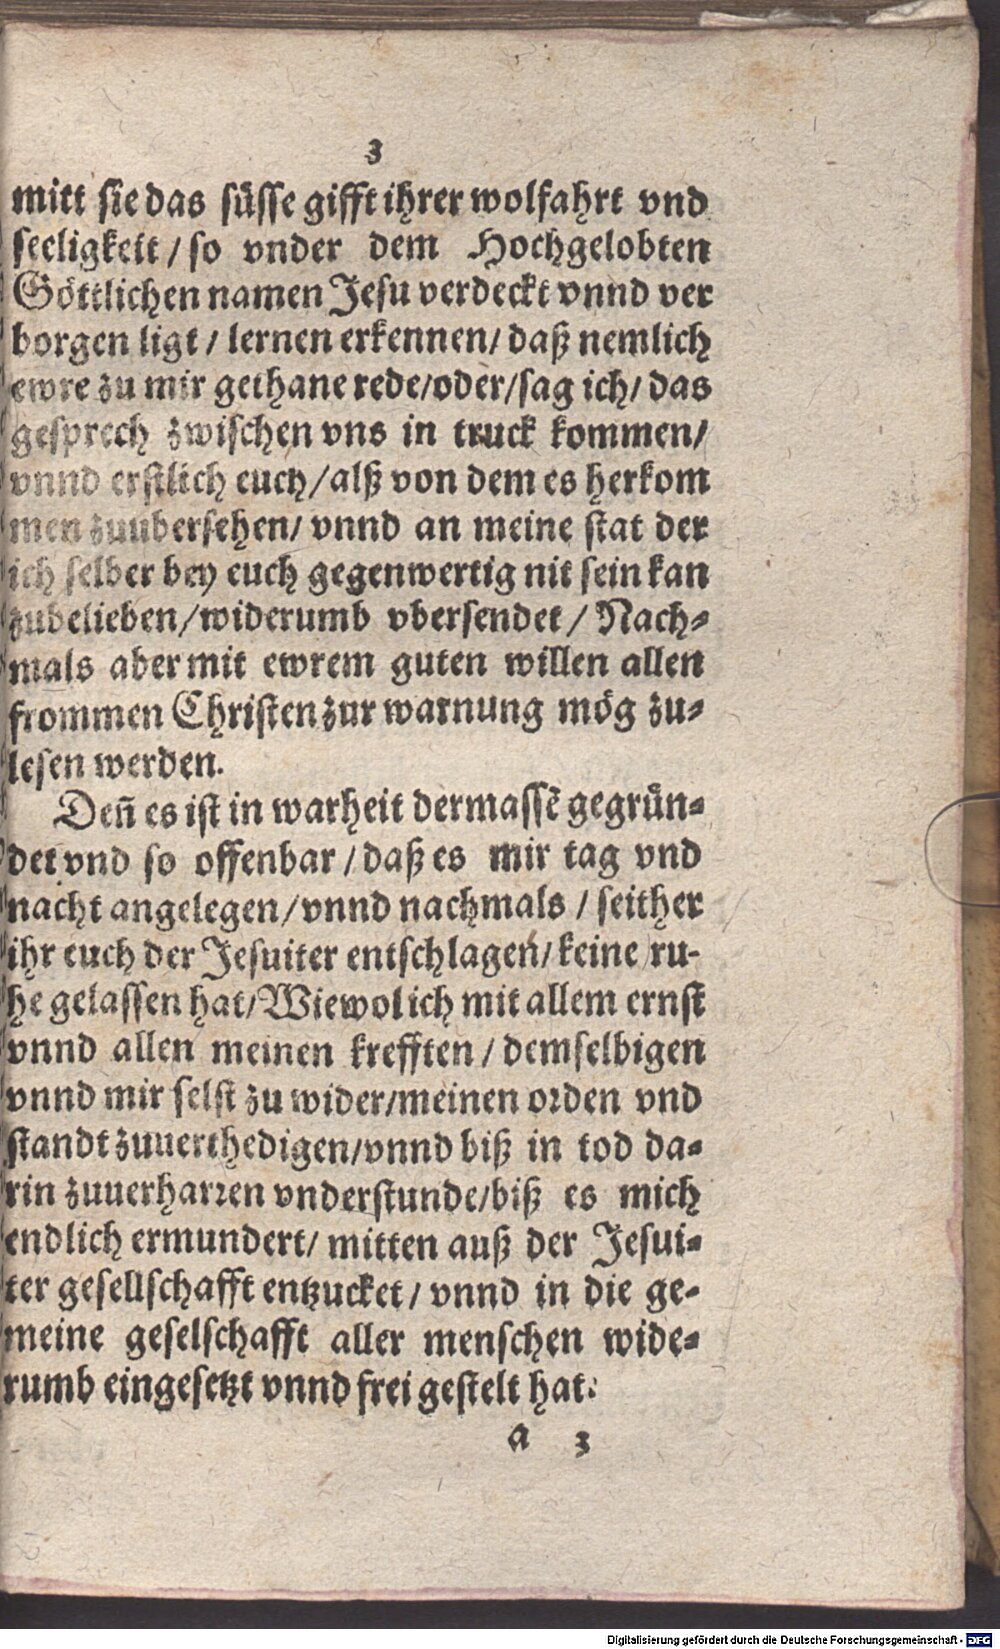 3
mitt sie das süsse gifft ihrer wolfahrt vnd
seeligkeit / so vnder dem Hochgelobten
Göttlichen namen Jesu verdeckt vnnd ver
borgen ligt / lernen erkennen / daß nemlich
ewre zu mir gethane rede / oder / sag ich / das
gesprech zwischen vns in truck kommen /
vnnd erstlich euch / alß von dem es herkom
men zuubersehen / vnnd an meine stat der
ich selber bey euch gegenwertig nit sein kan
zubelieben / widerumb vbersendet / Nach⸗
mals aber mit ewrem guten willen allen
frommen Christen zur warnung mög zu⸗
lesen werden.
Deñ es ist in warheit dermassẽ gegrün⸗
det vnd so offenbar / daß es mir tag vnd
nacht angelegen / vnnd nachmals / seither
ihr euch der Jesuiter entschlagen / keine ru-
he gelassen hat / Wiewol ich mit allem ernst
vnnd allen meinen krefften / demselbigen
vnnd mir selst zu wider / meinen orden vnd
standt zuuerthedigen / vnnd biß in tod da⸗
rin zuuerharren vnderstunde / biß es mich
endlich ermundert / mitten auß der Jesui⸗
ter gesellschafft entzucket / vnnd in die ge⸗
meine geselschafft aller menschen wide⸗
rumb eingesetzt vnnd frei gestelt hat.
a 3
Digitalisierung gefördert durch die Deutsche Forschungsgemeinschaft - DFG